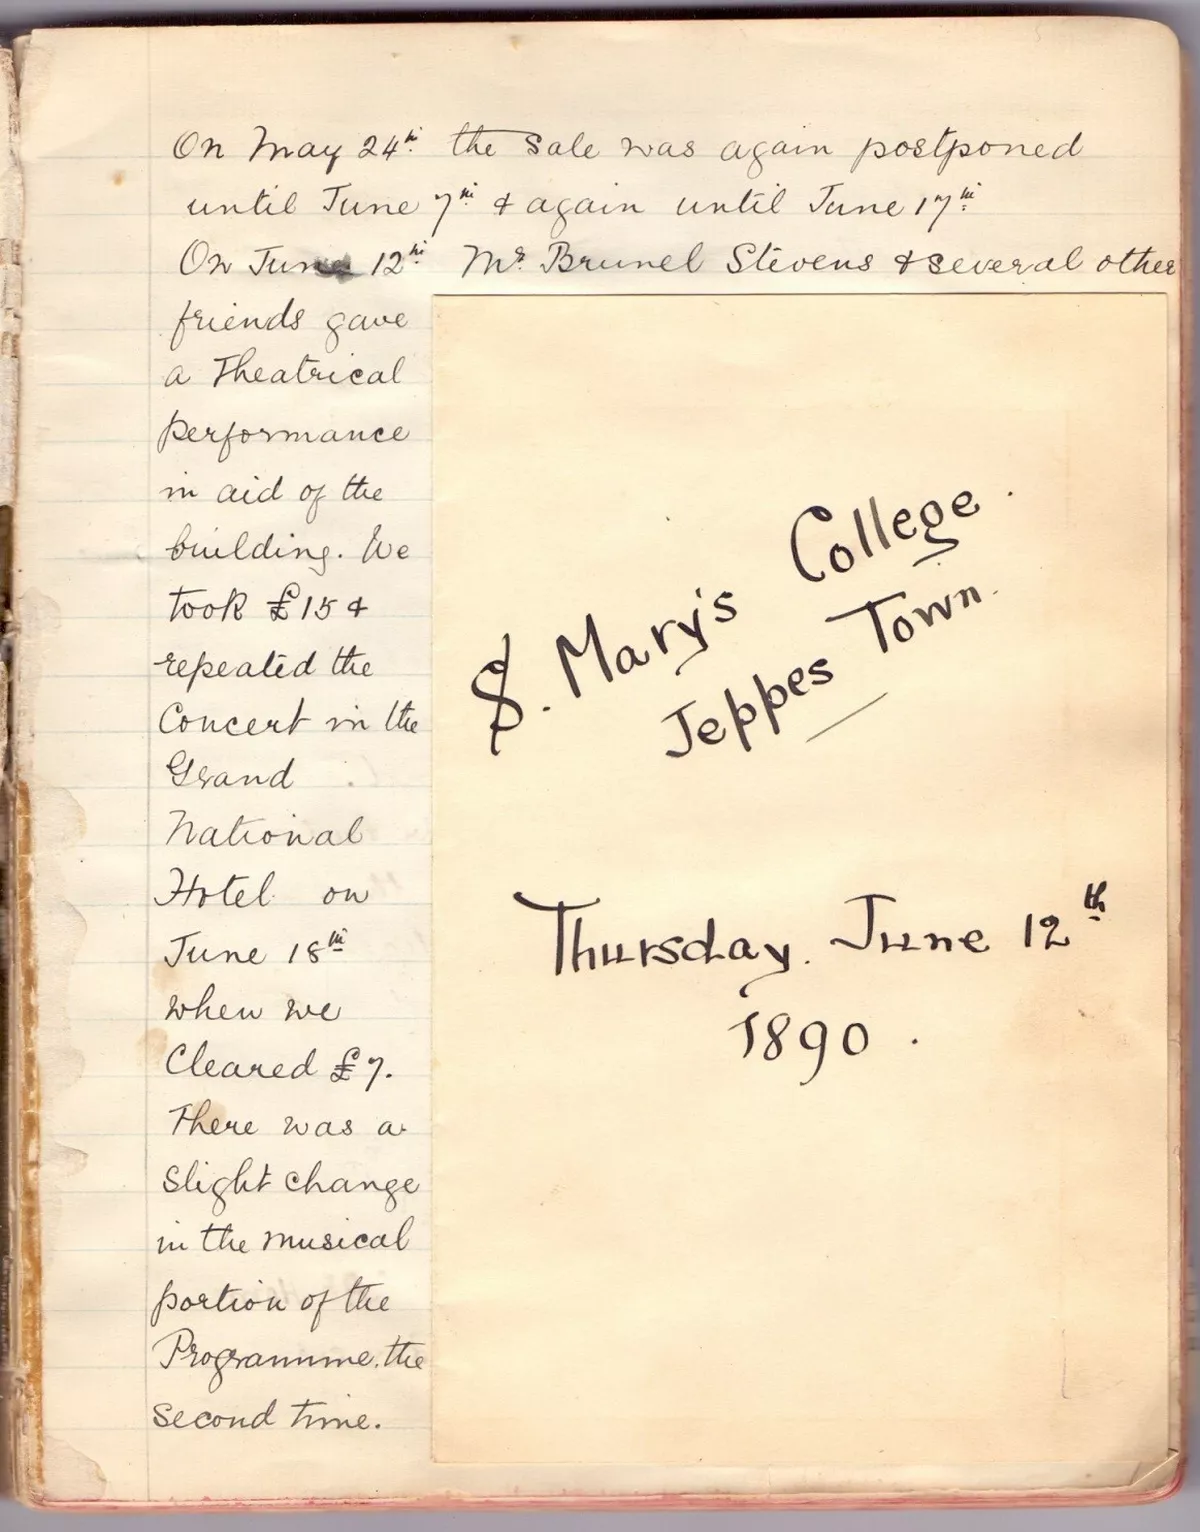 On May 24th the Sale was again postponed
until June 7th & again until June 17th
On June 12th Mr Brunel Stevens & several other
friends gave
a Theatrical
performance
in aid of the
building. We
took £15 &
repeated the
Concert in the
Grand
National
Hotel on
June 18th
when we
Cleared £7.
There was a
Slight change
in the musical
portion of the
Programme, the
Second time.
S. Mary's College.
Jeppes Town.
Thursday. June 12th
1890.